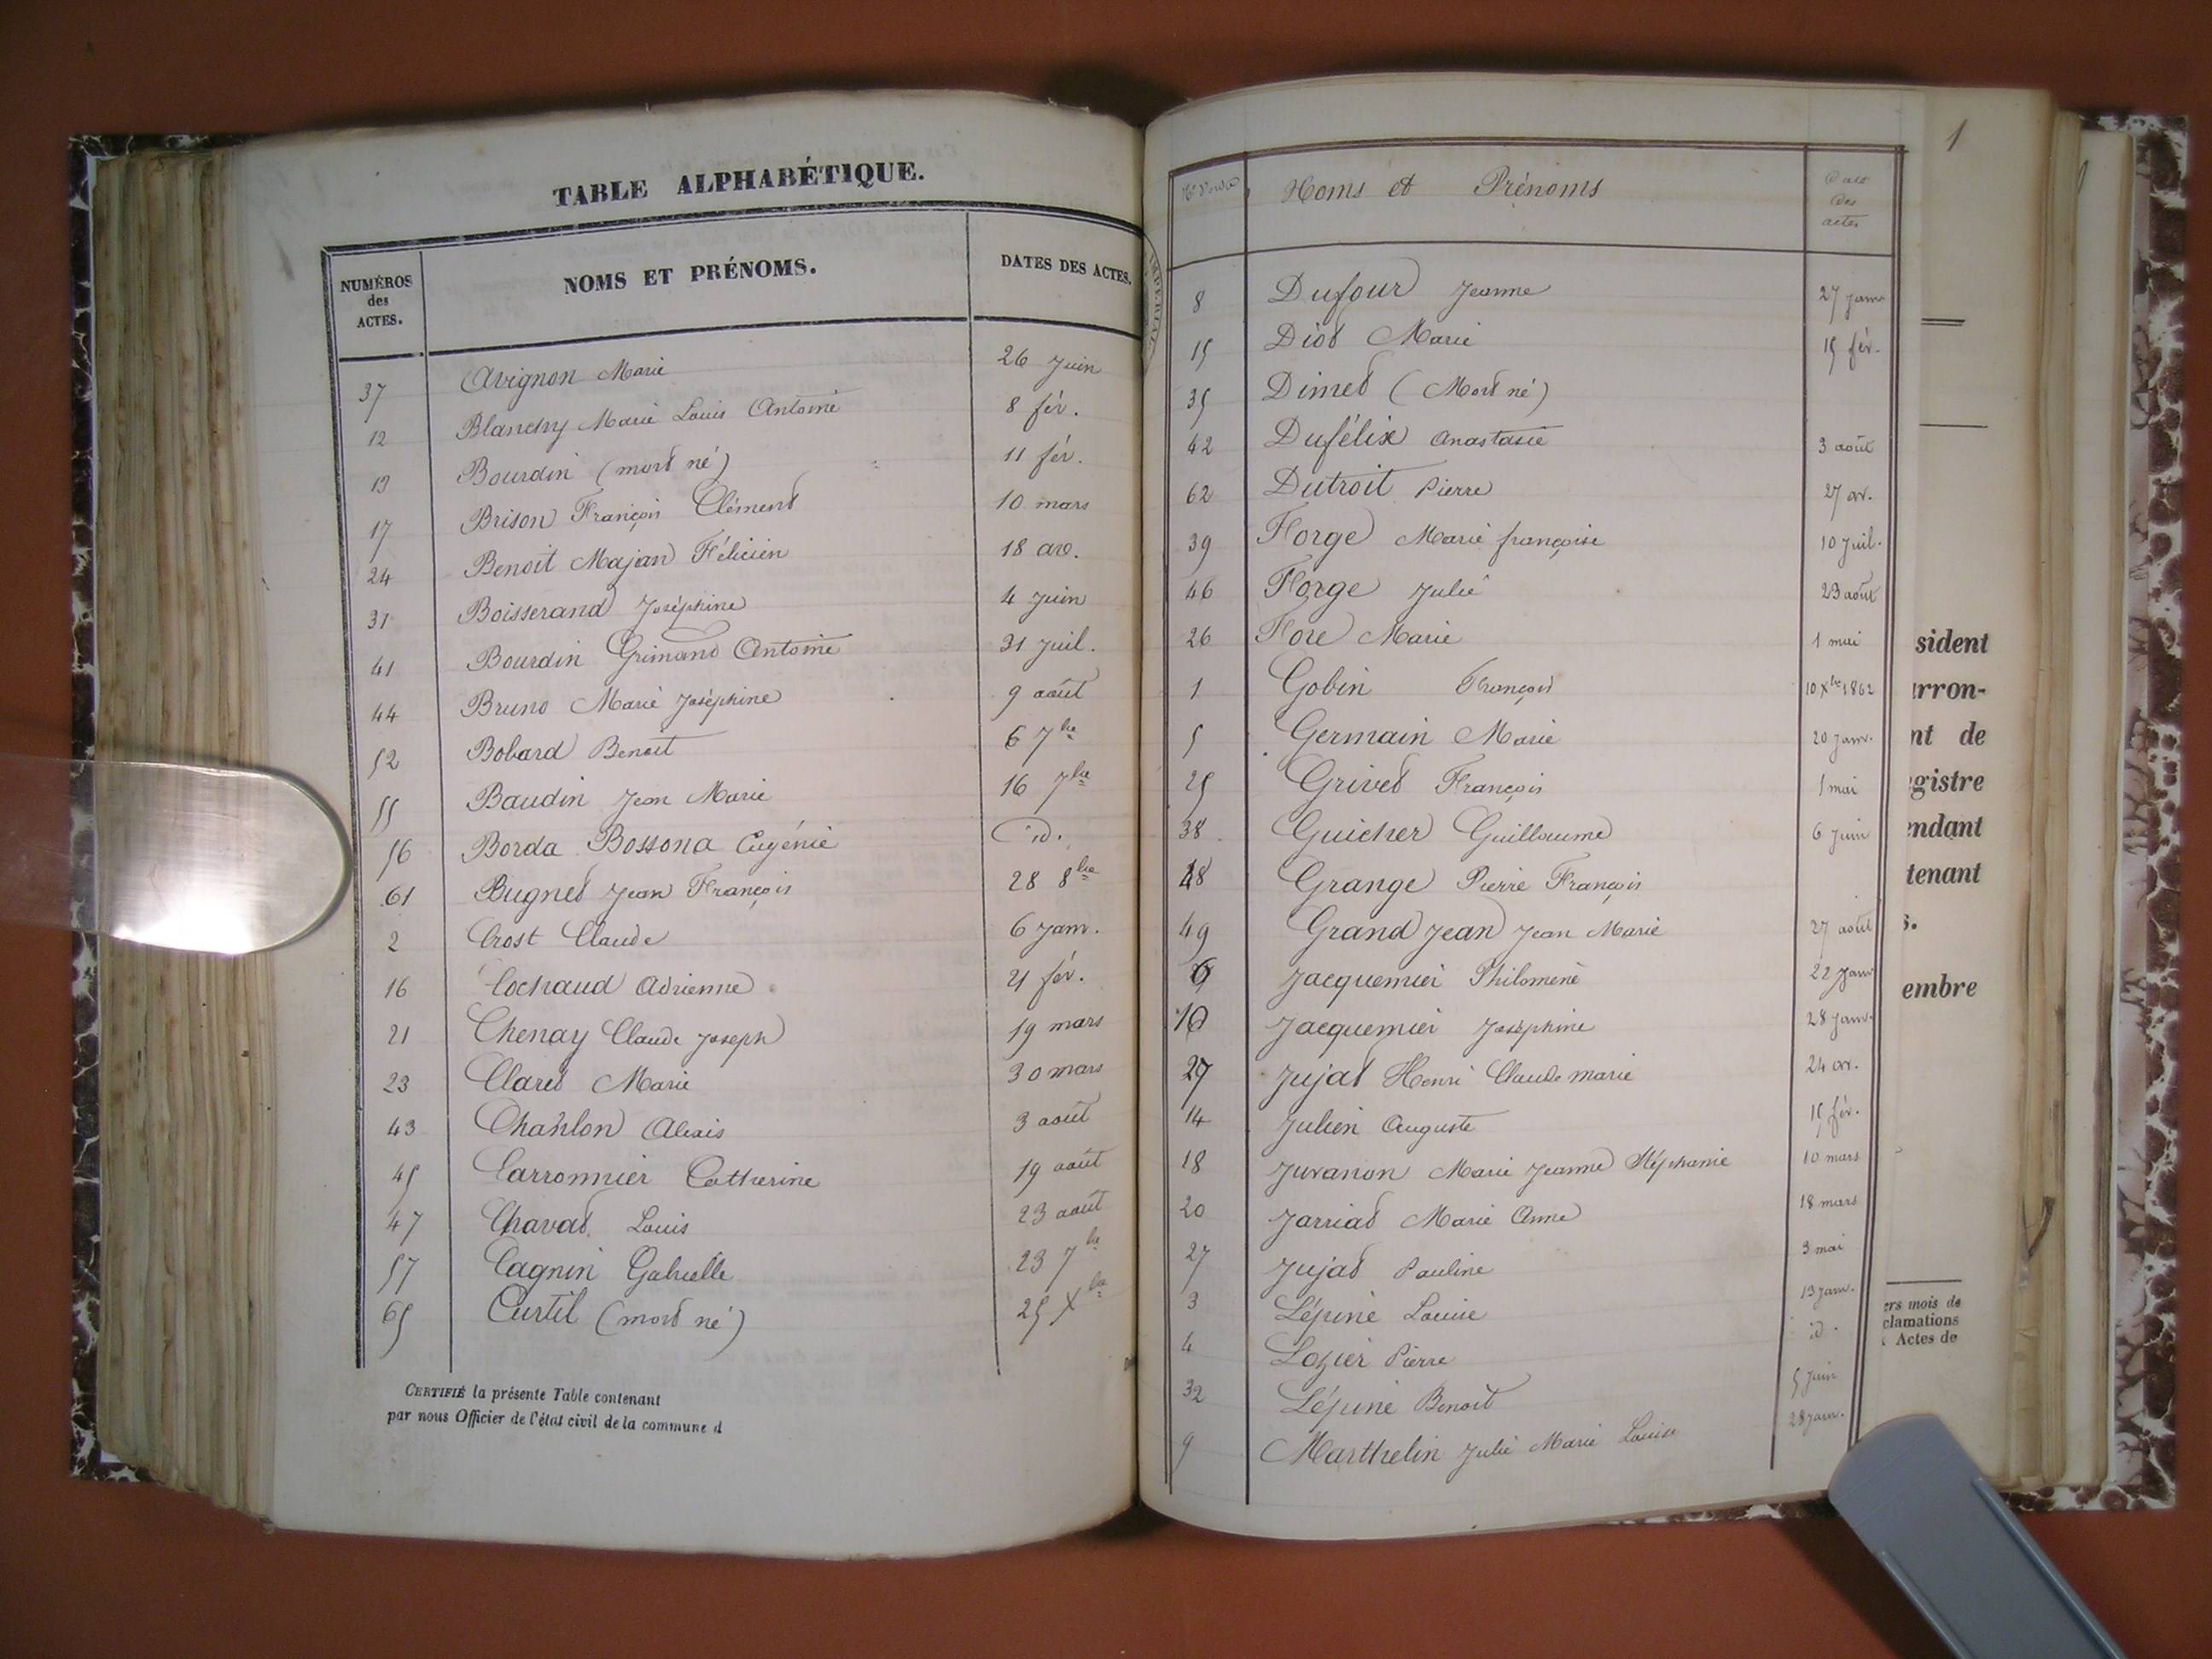 TABLE ALPHABÉTIQUE.
NUMÉROS des ACTES. NOMS ET PRÉNOMS. DATES DES ACTES.
37 Avignon Marie 26 Juin
12 Blanchy Marie Louis Antoine 8 fév.
13 Bourdin (mort né) 11 fév.
17 Brison François Clément 10 mars
24 Benoit Majan Félicien 18 av.
31 Boisserand Joséphine 4 Juin
41 Bourdin Grimand Antoine 31 Juil.
44 Bruno Marie Joséphine 9 août
52 Bobard Benoit 6 7bre
55 Baudin Jean Marie 16 7bre
56 Borda Bossona Eugénie id.
61 Bugnet Jean François 28 8bre
2 Crost Claude 6 janv.
16 Cochaud Adrienne 21 fév.
21 Chenay Claude Joseph 19 mars
23 Claret Marie 30 mars
43 Chanlon Alexis 3 août
45 Carronnier Catherine 19 août
47 Chavat Louis 23 août
57 Cagnin Gabrielle 23 7bre
65 Curtil (mort né) 25 Xbre
CERTIFIÉ la présente Table contenant
par nous Officier de l'état civil de la commune d
1
Nos d'ordre Noms et Prénoms Date des actes
8 Dufour Jeanne 27 janv
15 Diot Marie 15 fév.
35 Dimet (Mort né)
42 Dufélix Anastasie 3 août
62 Dutroit Pierre 27 ov.
39 Florge Marie françoise 10 Juil.
46 Florge Julie 23 août
26 Flore Marie 1 mai
1 Gobin François 10 Xbre 1862
5 Germain Marie 20 janv.
25 Grivet François 1 mai
38 Guicher Guillaume 6 Juin
48 Grange Pierre François
49 Grand Jean Jean Marie 27 août
6 Jacquemier Philomène 22 Janv
10 Jacquemier Joséphine 28 janv.
27 Jujat Henri Claude marie 24 av.
14 Julien Auguste 15 fév.
18 Juvanon Marie Jeanne Stéphanie 10 mars
20 Jarriat Marie Anne 18 mars
27 Jujat Pauline 3 mai
3 Lépine Louise 13 janv.
4 Lozier Pierre id.
32 Lépine Benoit 5 Juin
9 Marthelin Julie Marie Louise 28 janv.
sident
arron-
nt de
gistre
endant
tenant
s.
embre
ers mois de
clamations
Actes de